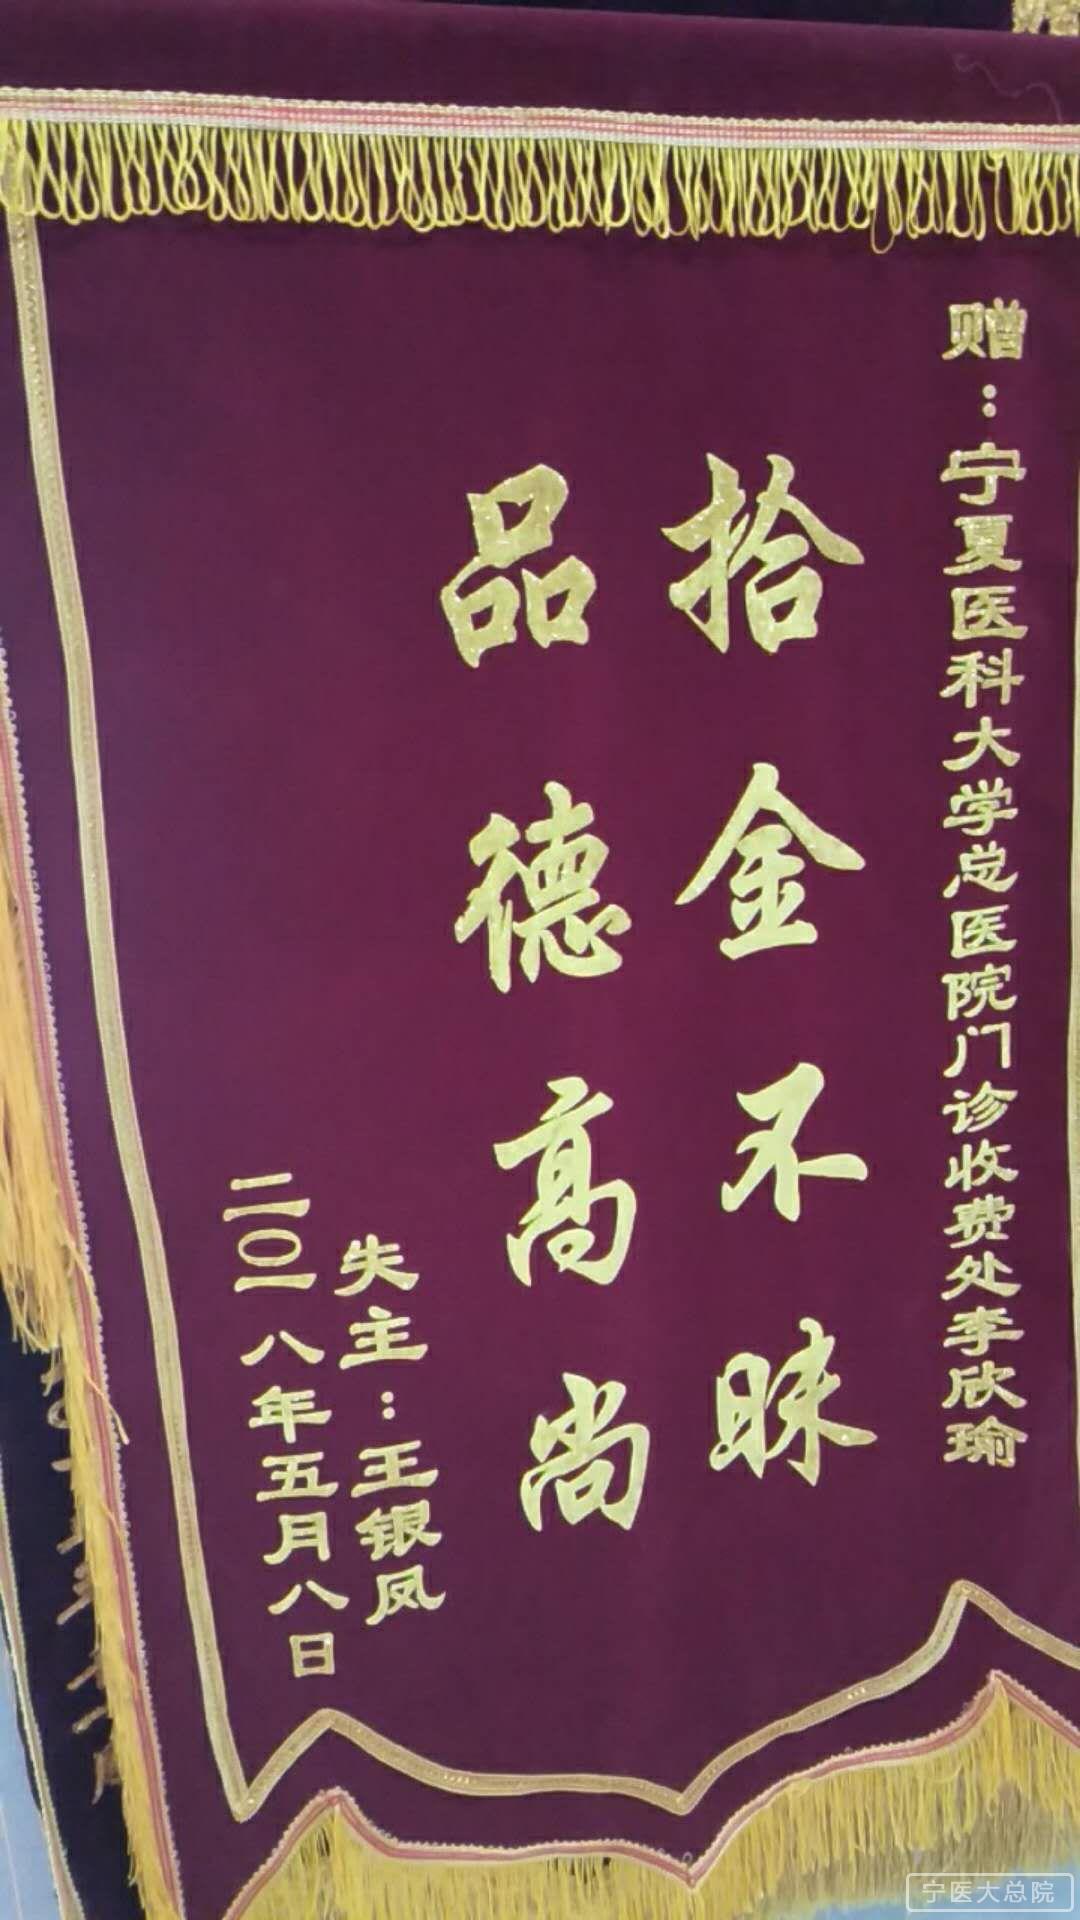 赠：宁夏医科大学总医院门诊收费处李欣瑜
拾金不昧
品德高尚
失主：王银凤
二〇一八年五月八日
宁医大总院